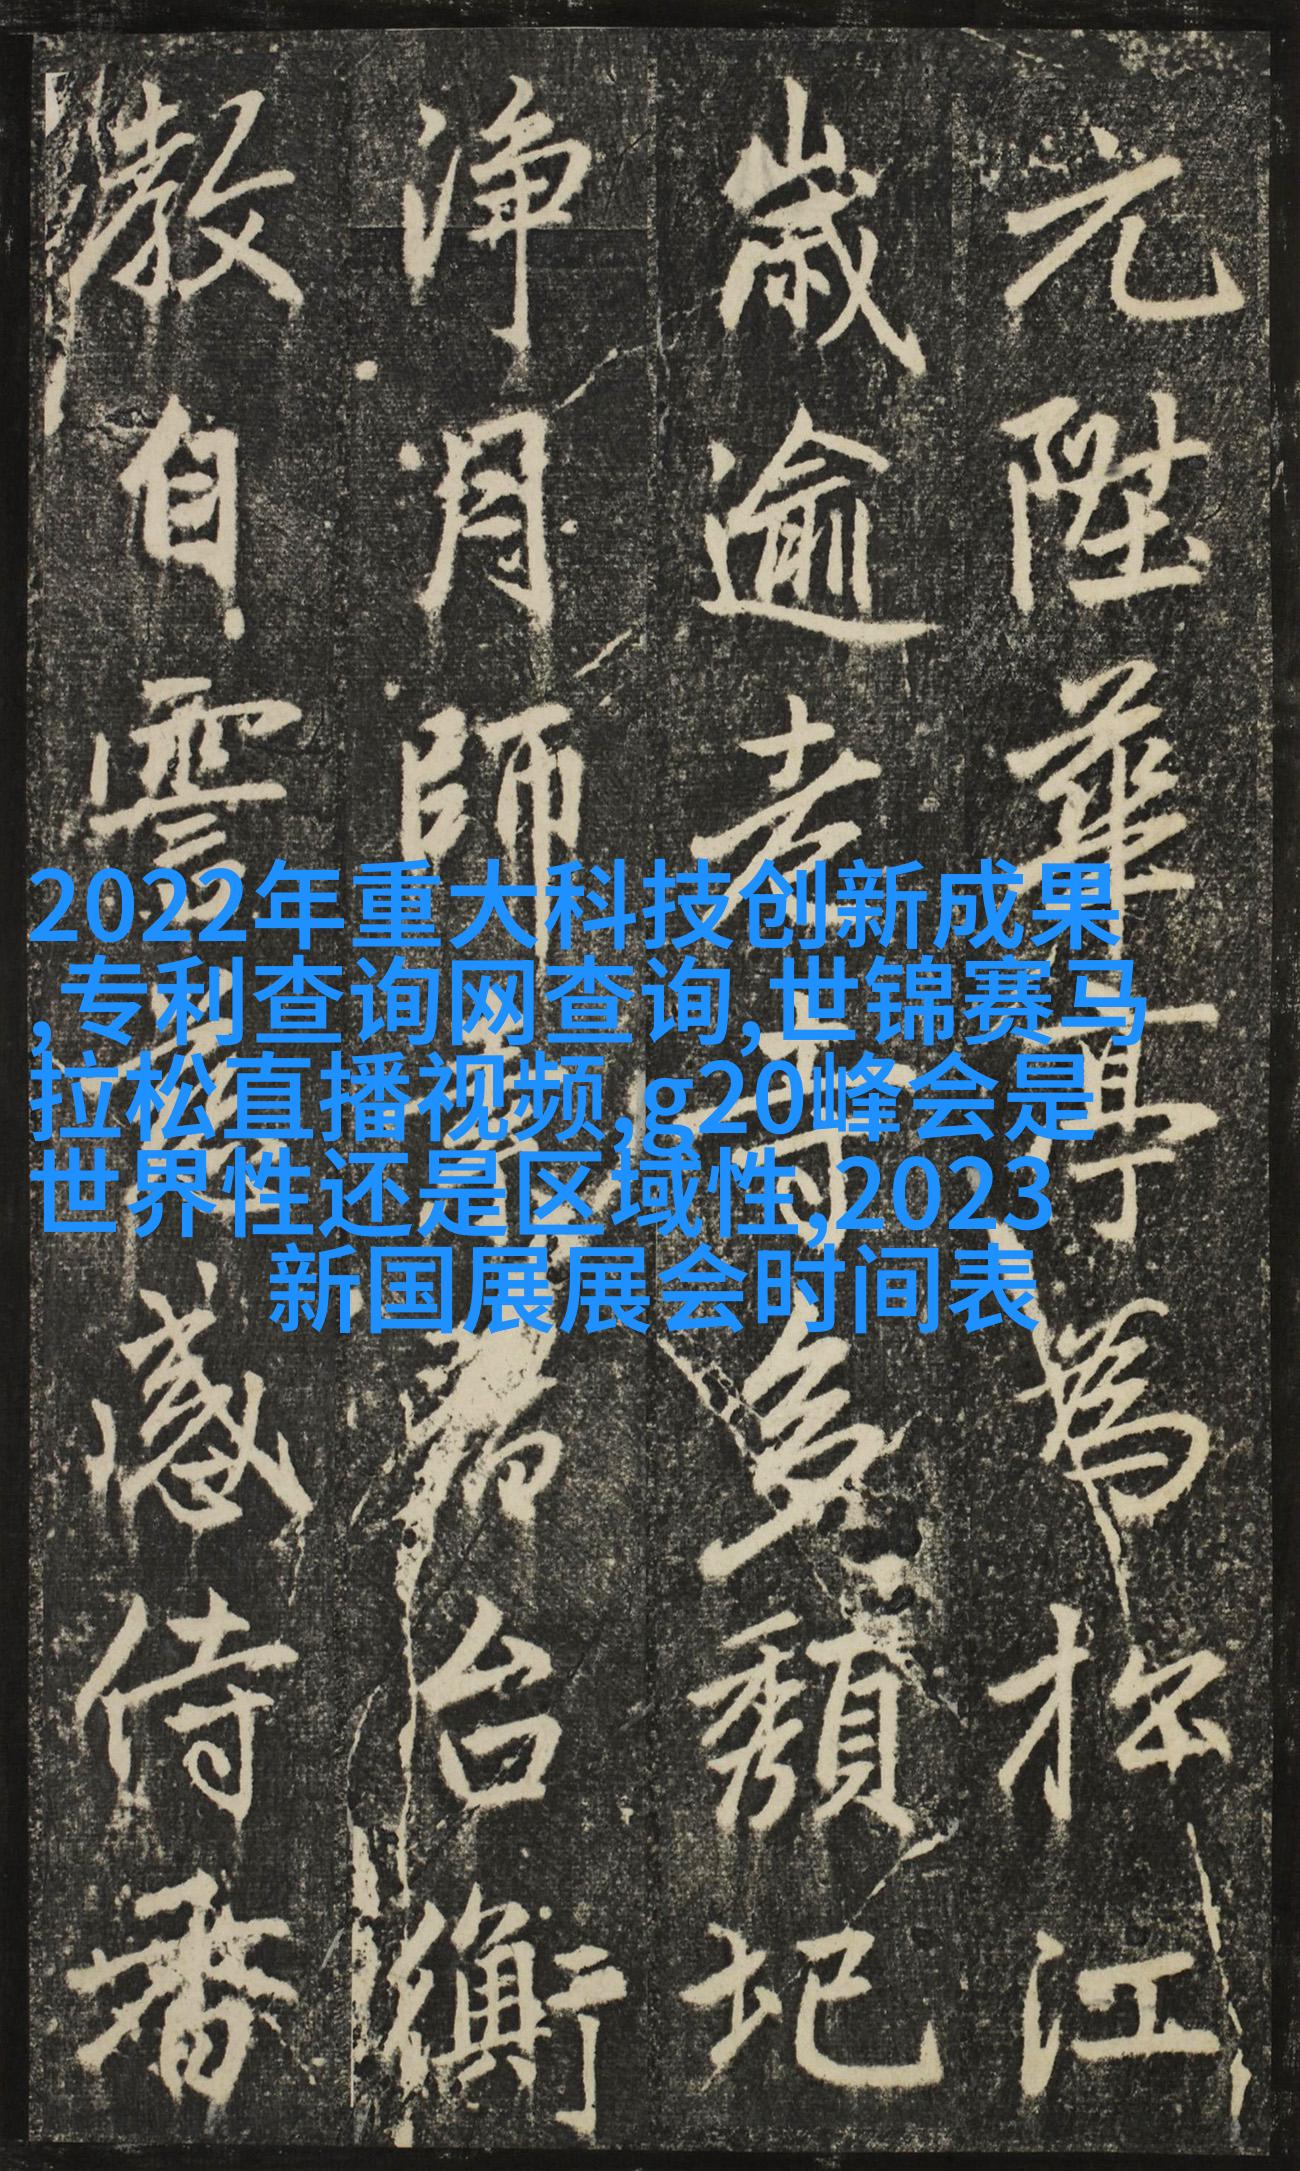 元陞華亭為松江
歲逾老耳多頹圮
淨月師
台衡
教自雲
感侍香
2022年重大科技创新成果
,专利查询网查询,世锦赛马
拉松直播视频,g20峰会是
世界性还是区域性,2023
新国展展会时间表